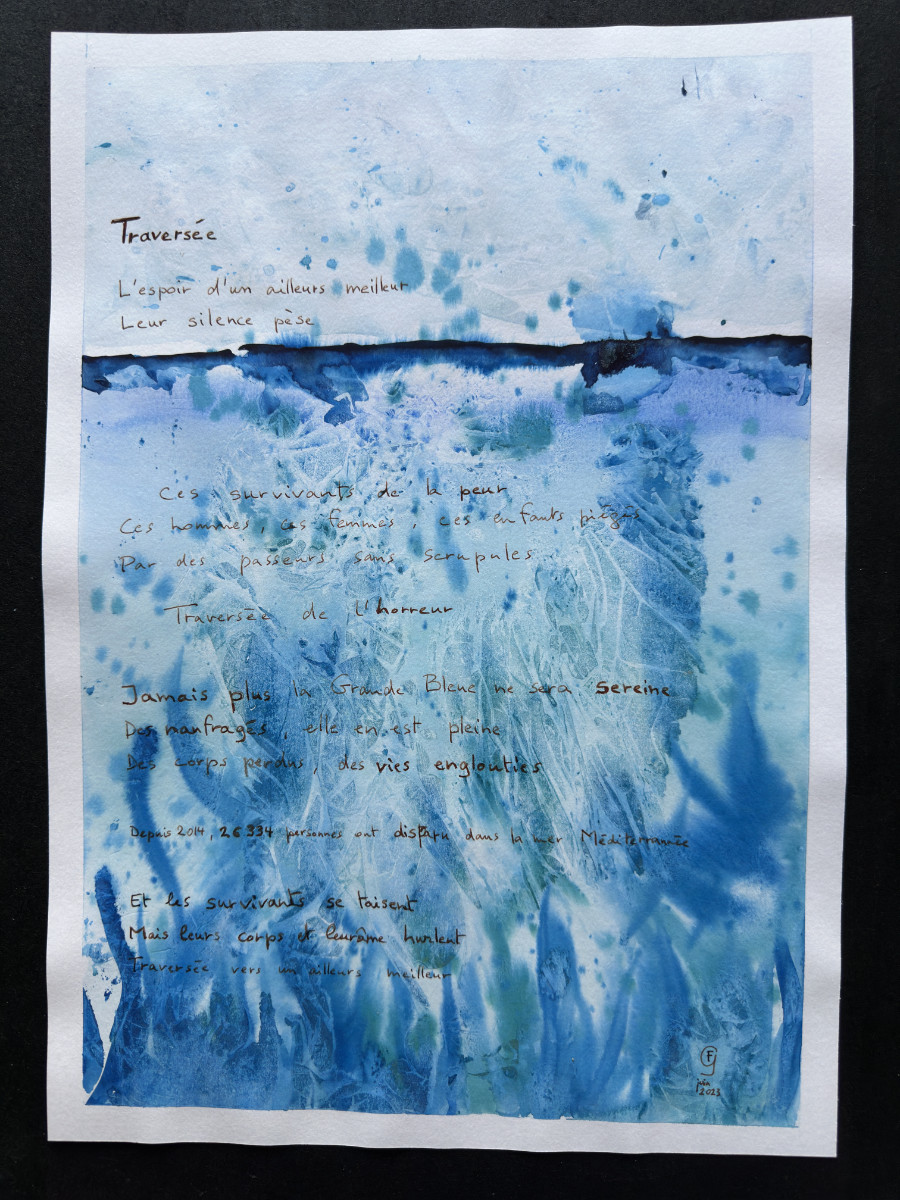 Traversée
L'espoir d'un ailleurs meilleur
Leur silence pèse
Ces survivants de la peur
Ces hommes, ces femmes, ces enfants piégés
Par des passeurs sans scrupules
Traversée de l'horreur
Jamais plus la Grande Bleue ne sera sereine
Des naufragés, elle en est pleine
Des corps perdus, des vies englouties
Depuis 2014, 26 334 personnes ont disparu dans la mer Méditerrannée
Et les survivants se taisent
Mais leurs corps et leur âme hurlent
Traversée vers un ailleurs meilleur
juin
2023